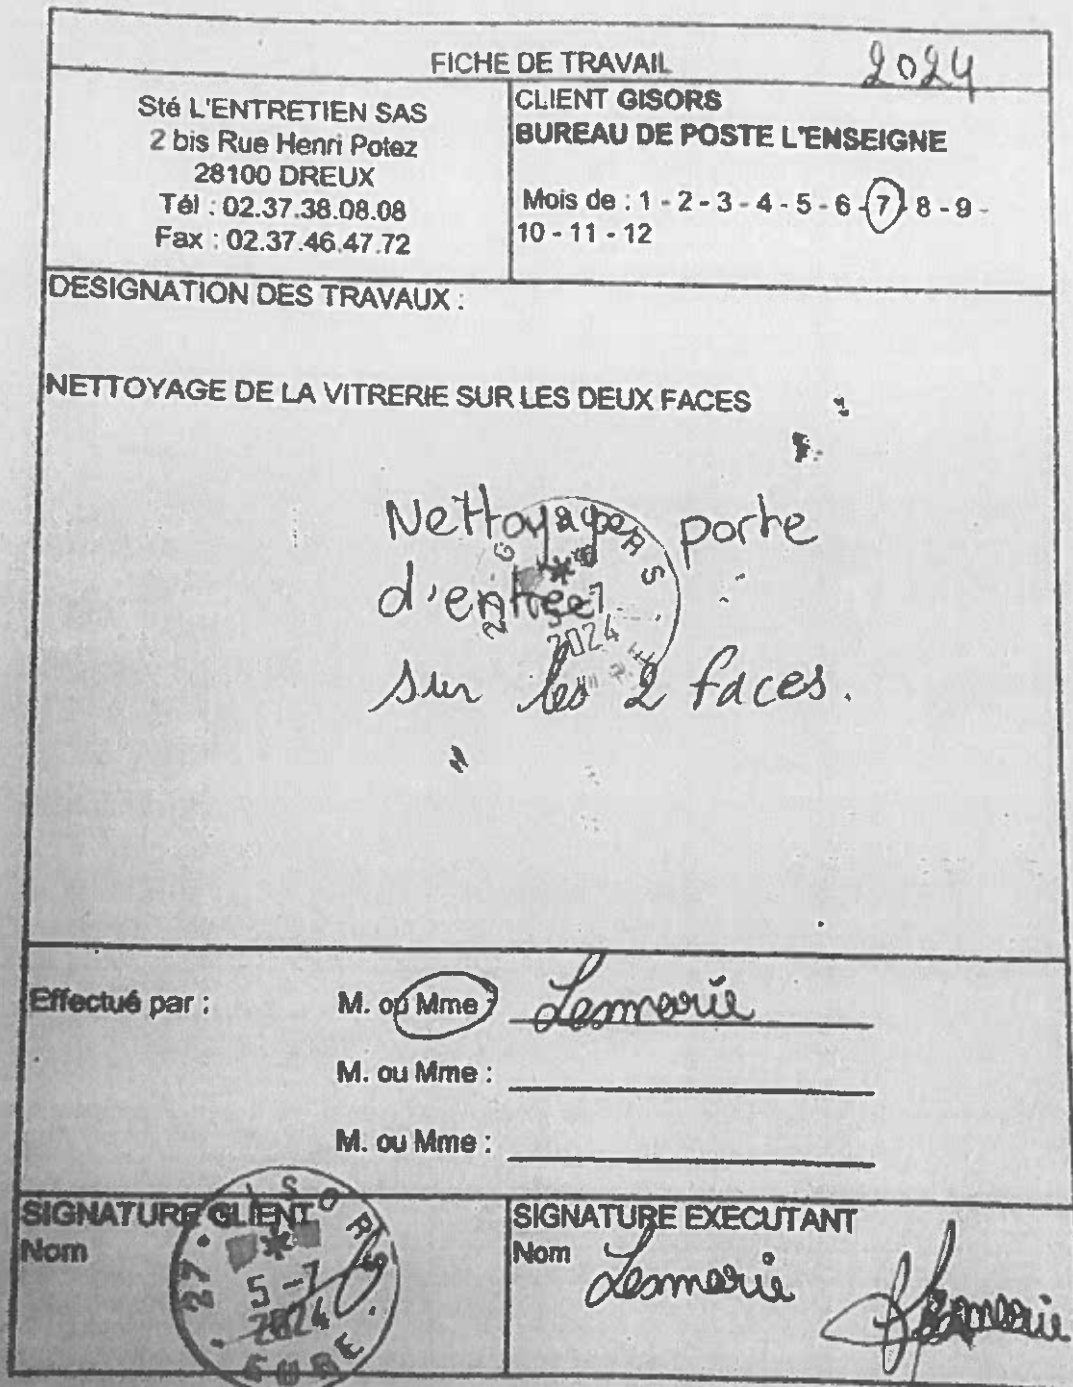 FICHE DE TRAVAIL
2024
Sté L'ENTRETIEN SAS
2 bis Rue Henri Potez
28100 DREUX
Tél : 02.37.38.08.08
Fax : 02.37.46.47.72
CLIENT GISORS
BUREAU DE POSTE L'ENSEIGNE
Mois de : 1 - 2 - 3 - 4 - 5 - 6 - 7 - 8 - 9 -
10 - 11 - 12
DESIGNATION DES TRAVAUX :
NETTOYAGE DE LA VITRERIE SUR LES DEUX FACES
Nettoyage porte
d'entrée
sur les 2 faces.
2024
Effectué par :
M. ou Mme : Lesmarie
M. ou Mme :
M. ou Mme :
SIGNATURE CLIENT
Nom
27 GISORS
5-7
2024
EURE
SIGNATURE EXECUTANT
Nom Lesmarie
Lesmarie